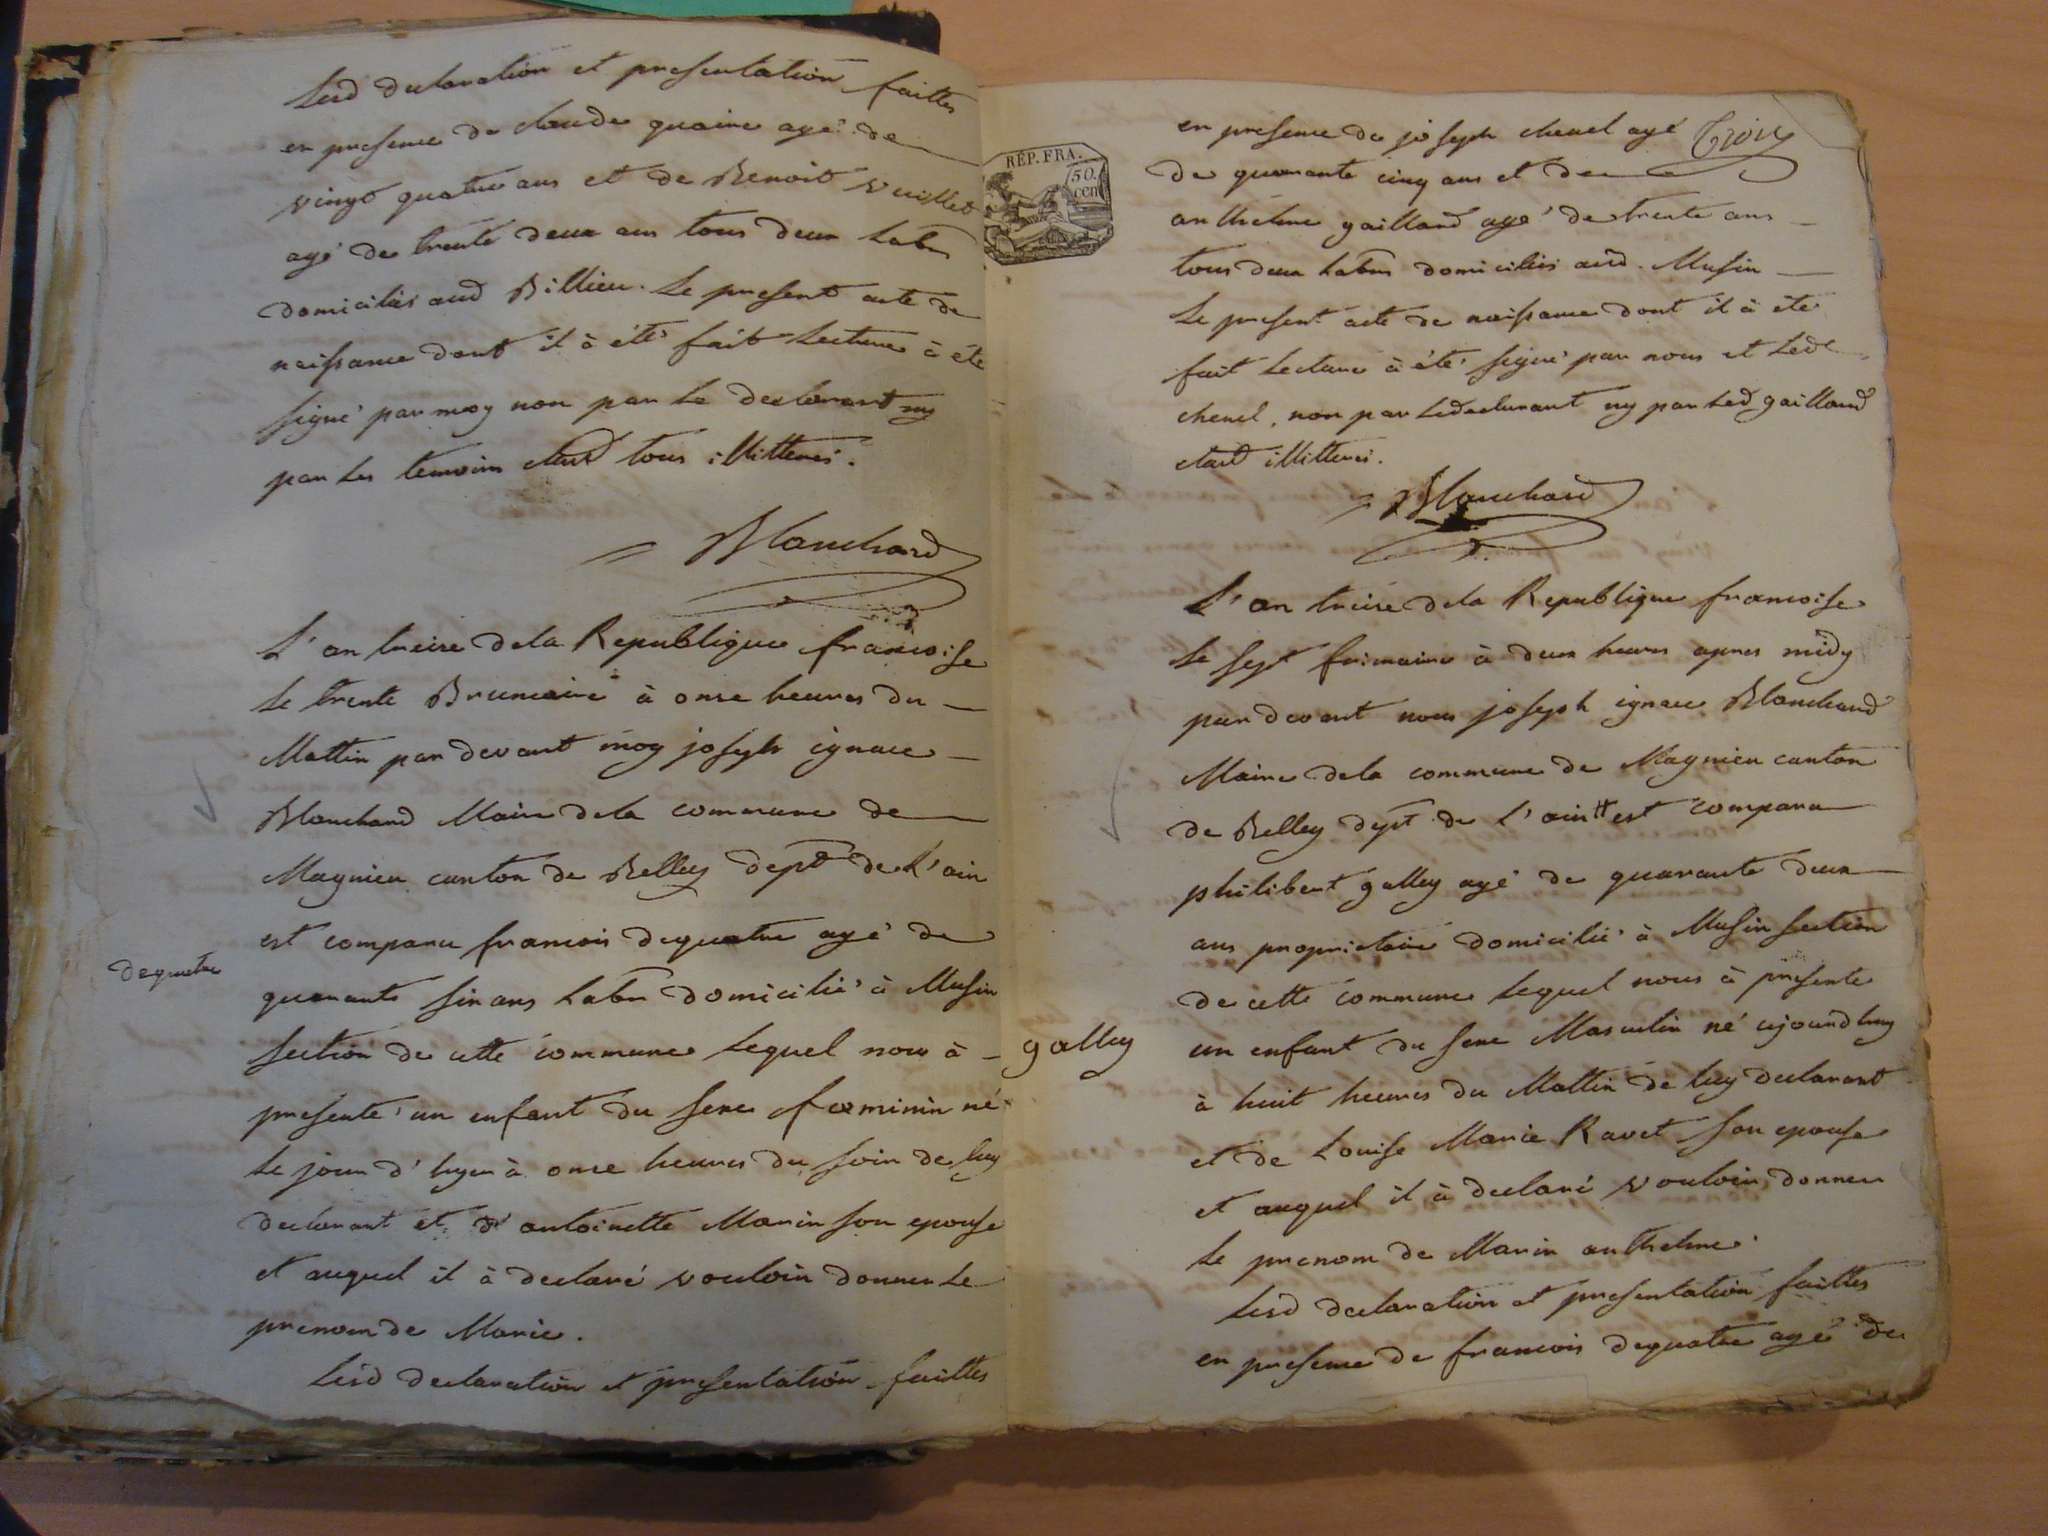 Lesd declaration et presentation faittes
en presence de claude quaine agé de
vingt quatre ans et de Benoit vuillet
agé de trente deux ans tous deux labrs
domiciliés aud Billieu. Le present acte de
naissance dont il à été fait Lecture à été
signé par moy non par le declarant ny
par les temoins etant tous illitterés.
Blanchard
L'an treize dela Republique francoise
Le trente Brumaire à onze heures du
Mattin par devant moy joseph ignace
Blanchard Maire dela commune de
Magnieu canton de Belley dept de L'ain
est comparu francois dequatre agé de
dequatre
quarante six ans labr domicilié à Musin
section de cette commune Lequel nous à
presenté un enfant du sexe faminin né
le jour d'hyer à onze heures du soir de luy
declarant et d'antoinette Marin son epouse
et auquel il à declaré vouloir donner Le
prenom de Marie.
Lesd declaration et presentation faittes
RÉP. FRA.
50.
cen
Trois
en presence de joseph chenel agé
de quarante cinq ans et de
anthelme gaillard agé de trente ans
tous deux labrs domiciliés aud. Musin
Le present acte de naissance dont il à été
fait Lecture à été signé par nous et Led
chenel, non par Ledeclarant ny par Led gaillard
etant illitteré.
Blanchard
L'an treize dela Republique francoise
Le sept frimaire à deux heures apres midy
par devant nous joseph ignace Blanchard
Maire dela commune de Magnieu canton
de Belley dept de L'ain est comparu
philibert galley agé de quarante deux
ans proprietaire domicilié à Musin section
de cette commune Lequel nous à presenté
galley
un enfant du sexe Masculin né ajourdhuy
à huit heures du Mattin de luy declarant
et de Louise Marie Ravet son epouse
et auquel il à declaré vouloir donner
le prenom de Marin anthelme.
Lesd declaration et presentation faittes
en presence de francois dequatre agé de